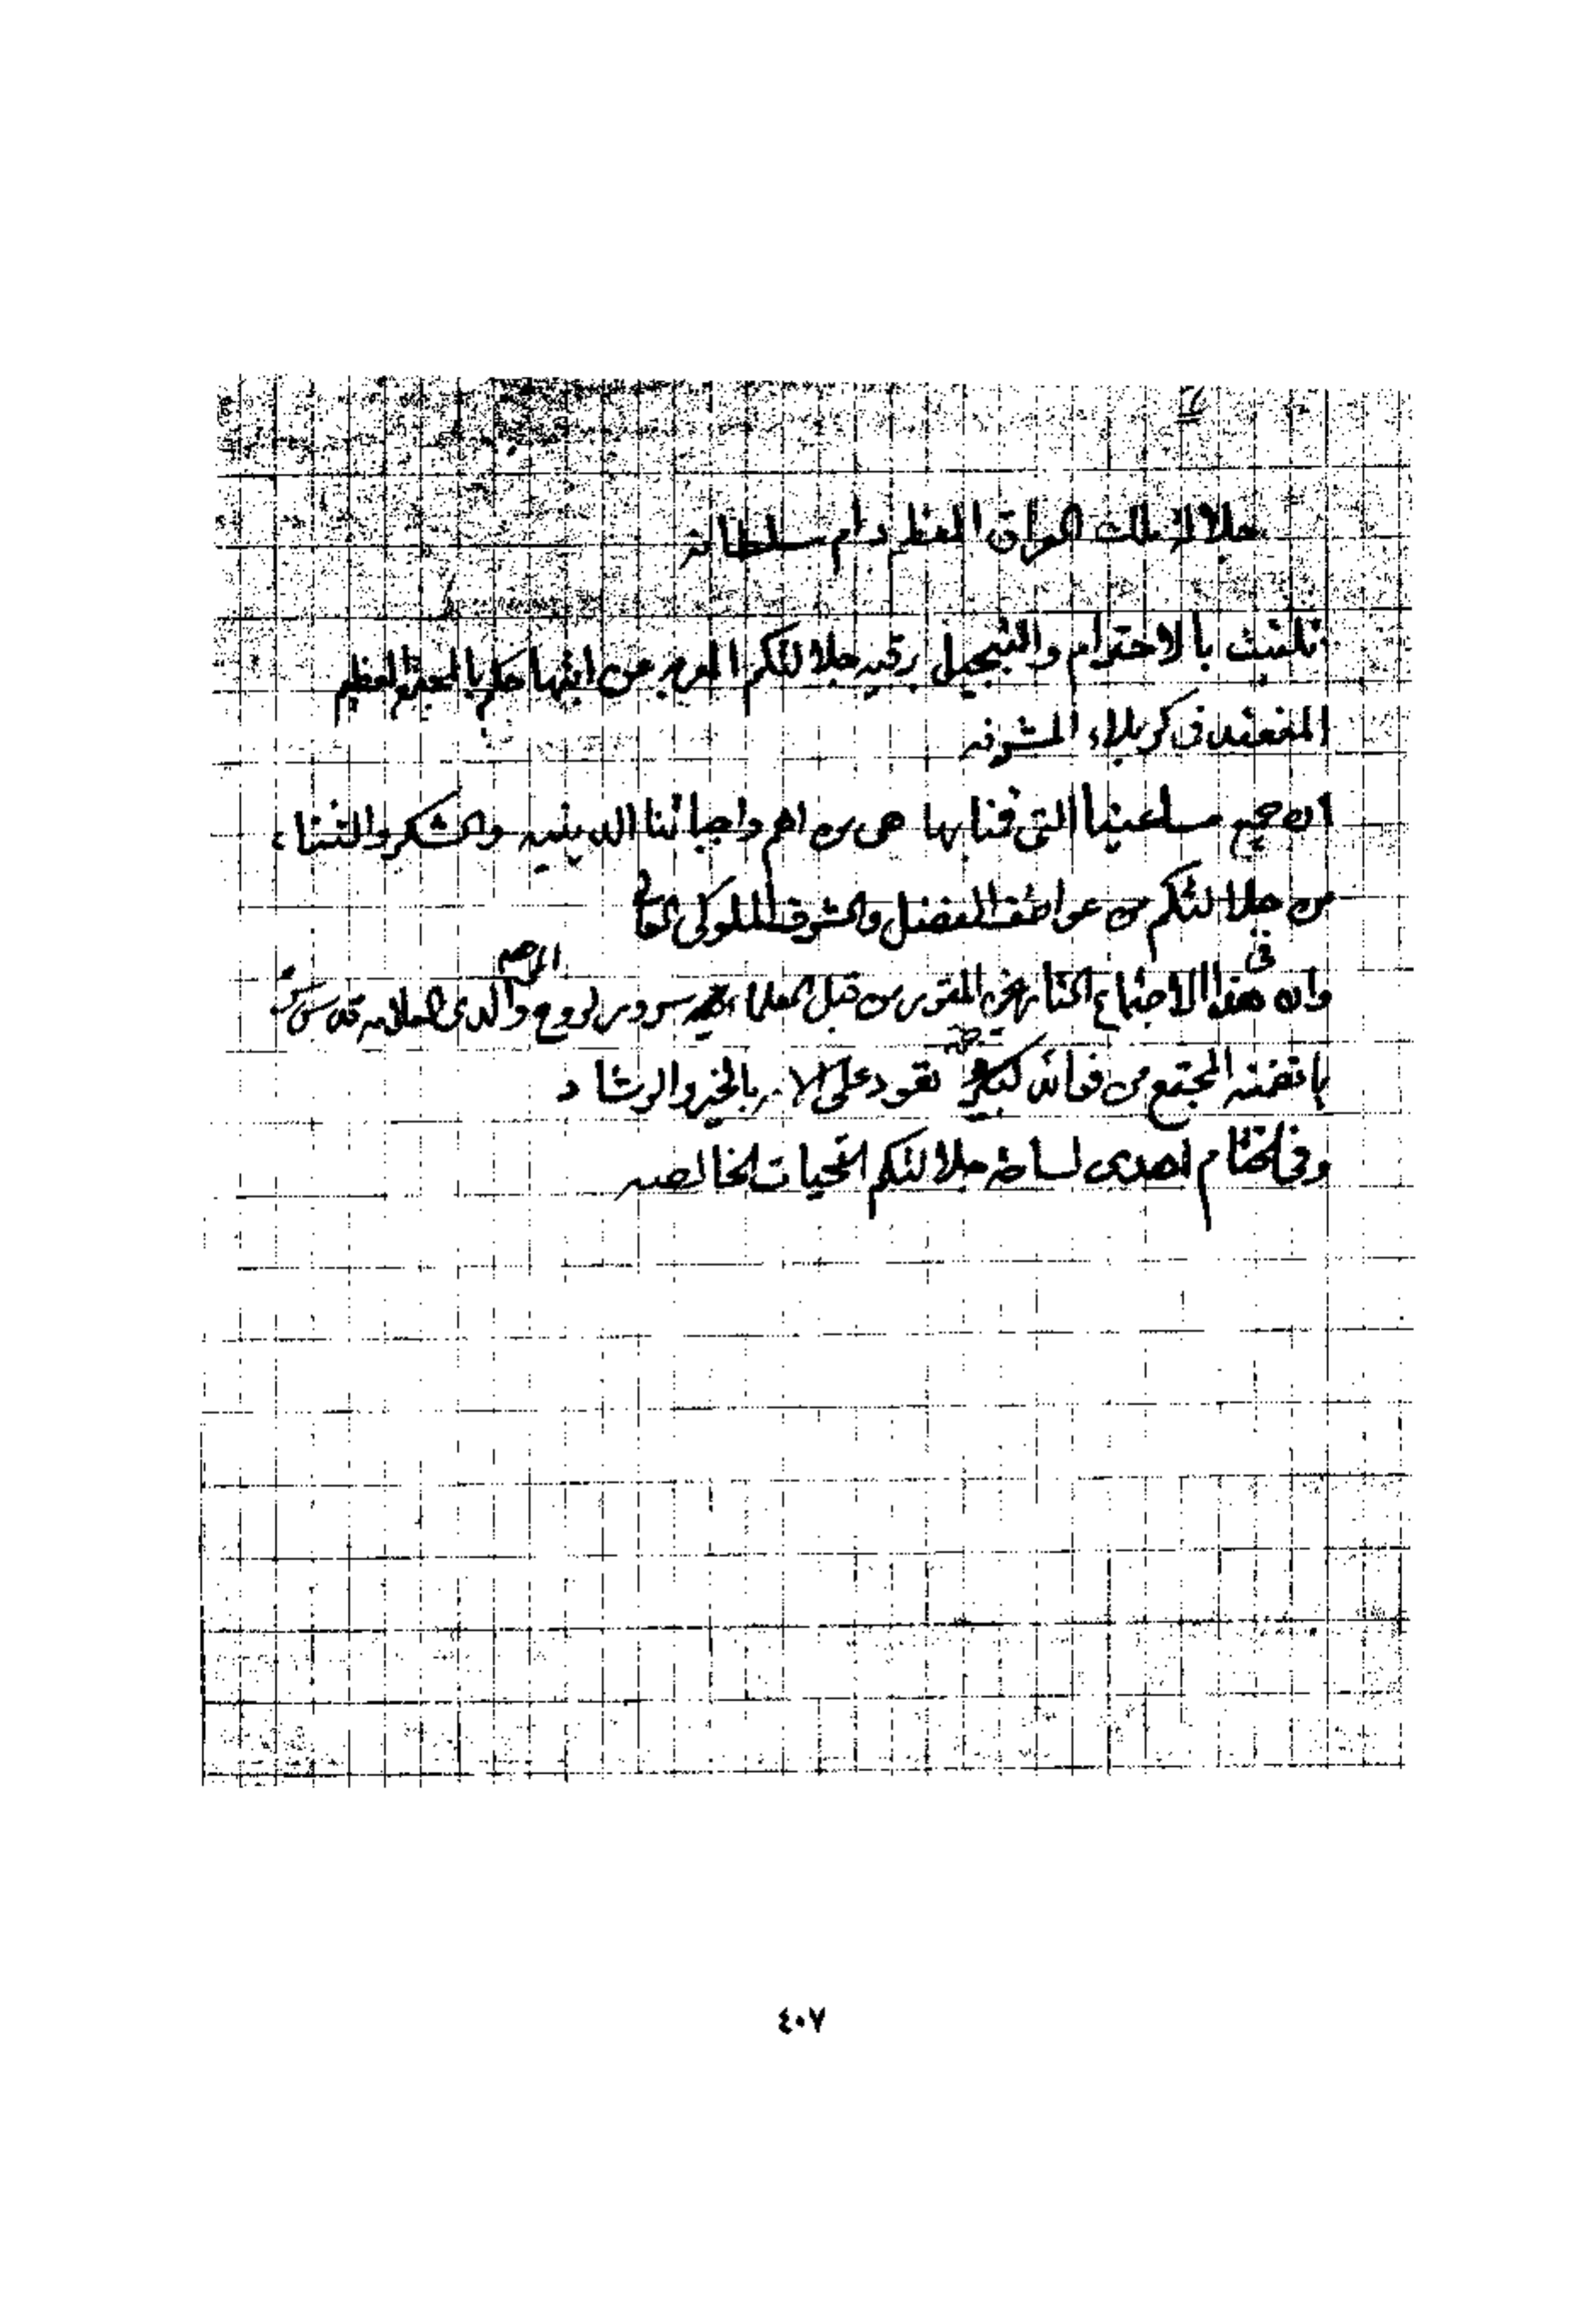 جلالة ملك العراق المعظم دام سلطانه
تلقيت بالاحترام والتبجيل برقيه جلالتكم المعربه عن ابتهاجكم بالمجتمع العظيم
المنعقد في كربلاء المشرفه
ان جميع مساعينا التي قمنا بها هي من اهم واجباتنا الدينيه والشكر والثناء
من جلالتكم من عواطف الفضل والشرف الملوكي
وان في هذا الاجتماع من قبل العلماء سرور لروح والدي المرحوم العلامه قدس سره
بما تضمنه المجتمع من فوائد تعود على الامه بالخير والرشاد
وفي الختام اهدى لساحة جلالتكم التحيات الخالصه
٤٠٧